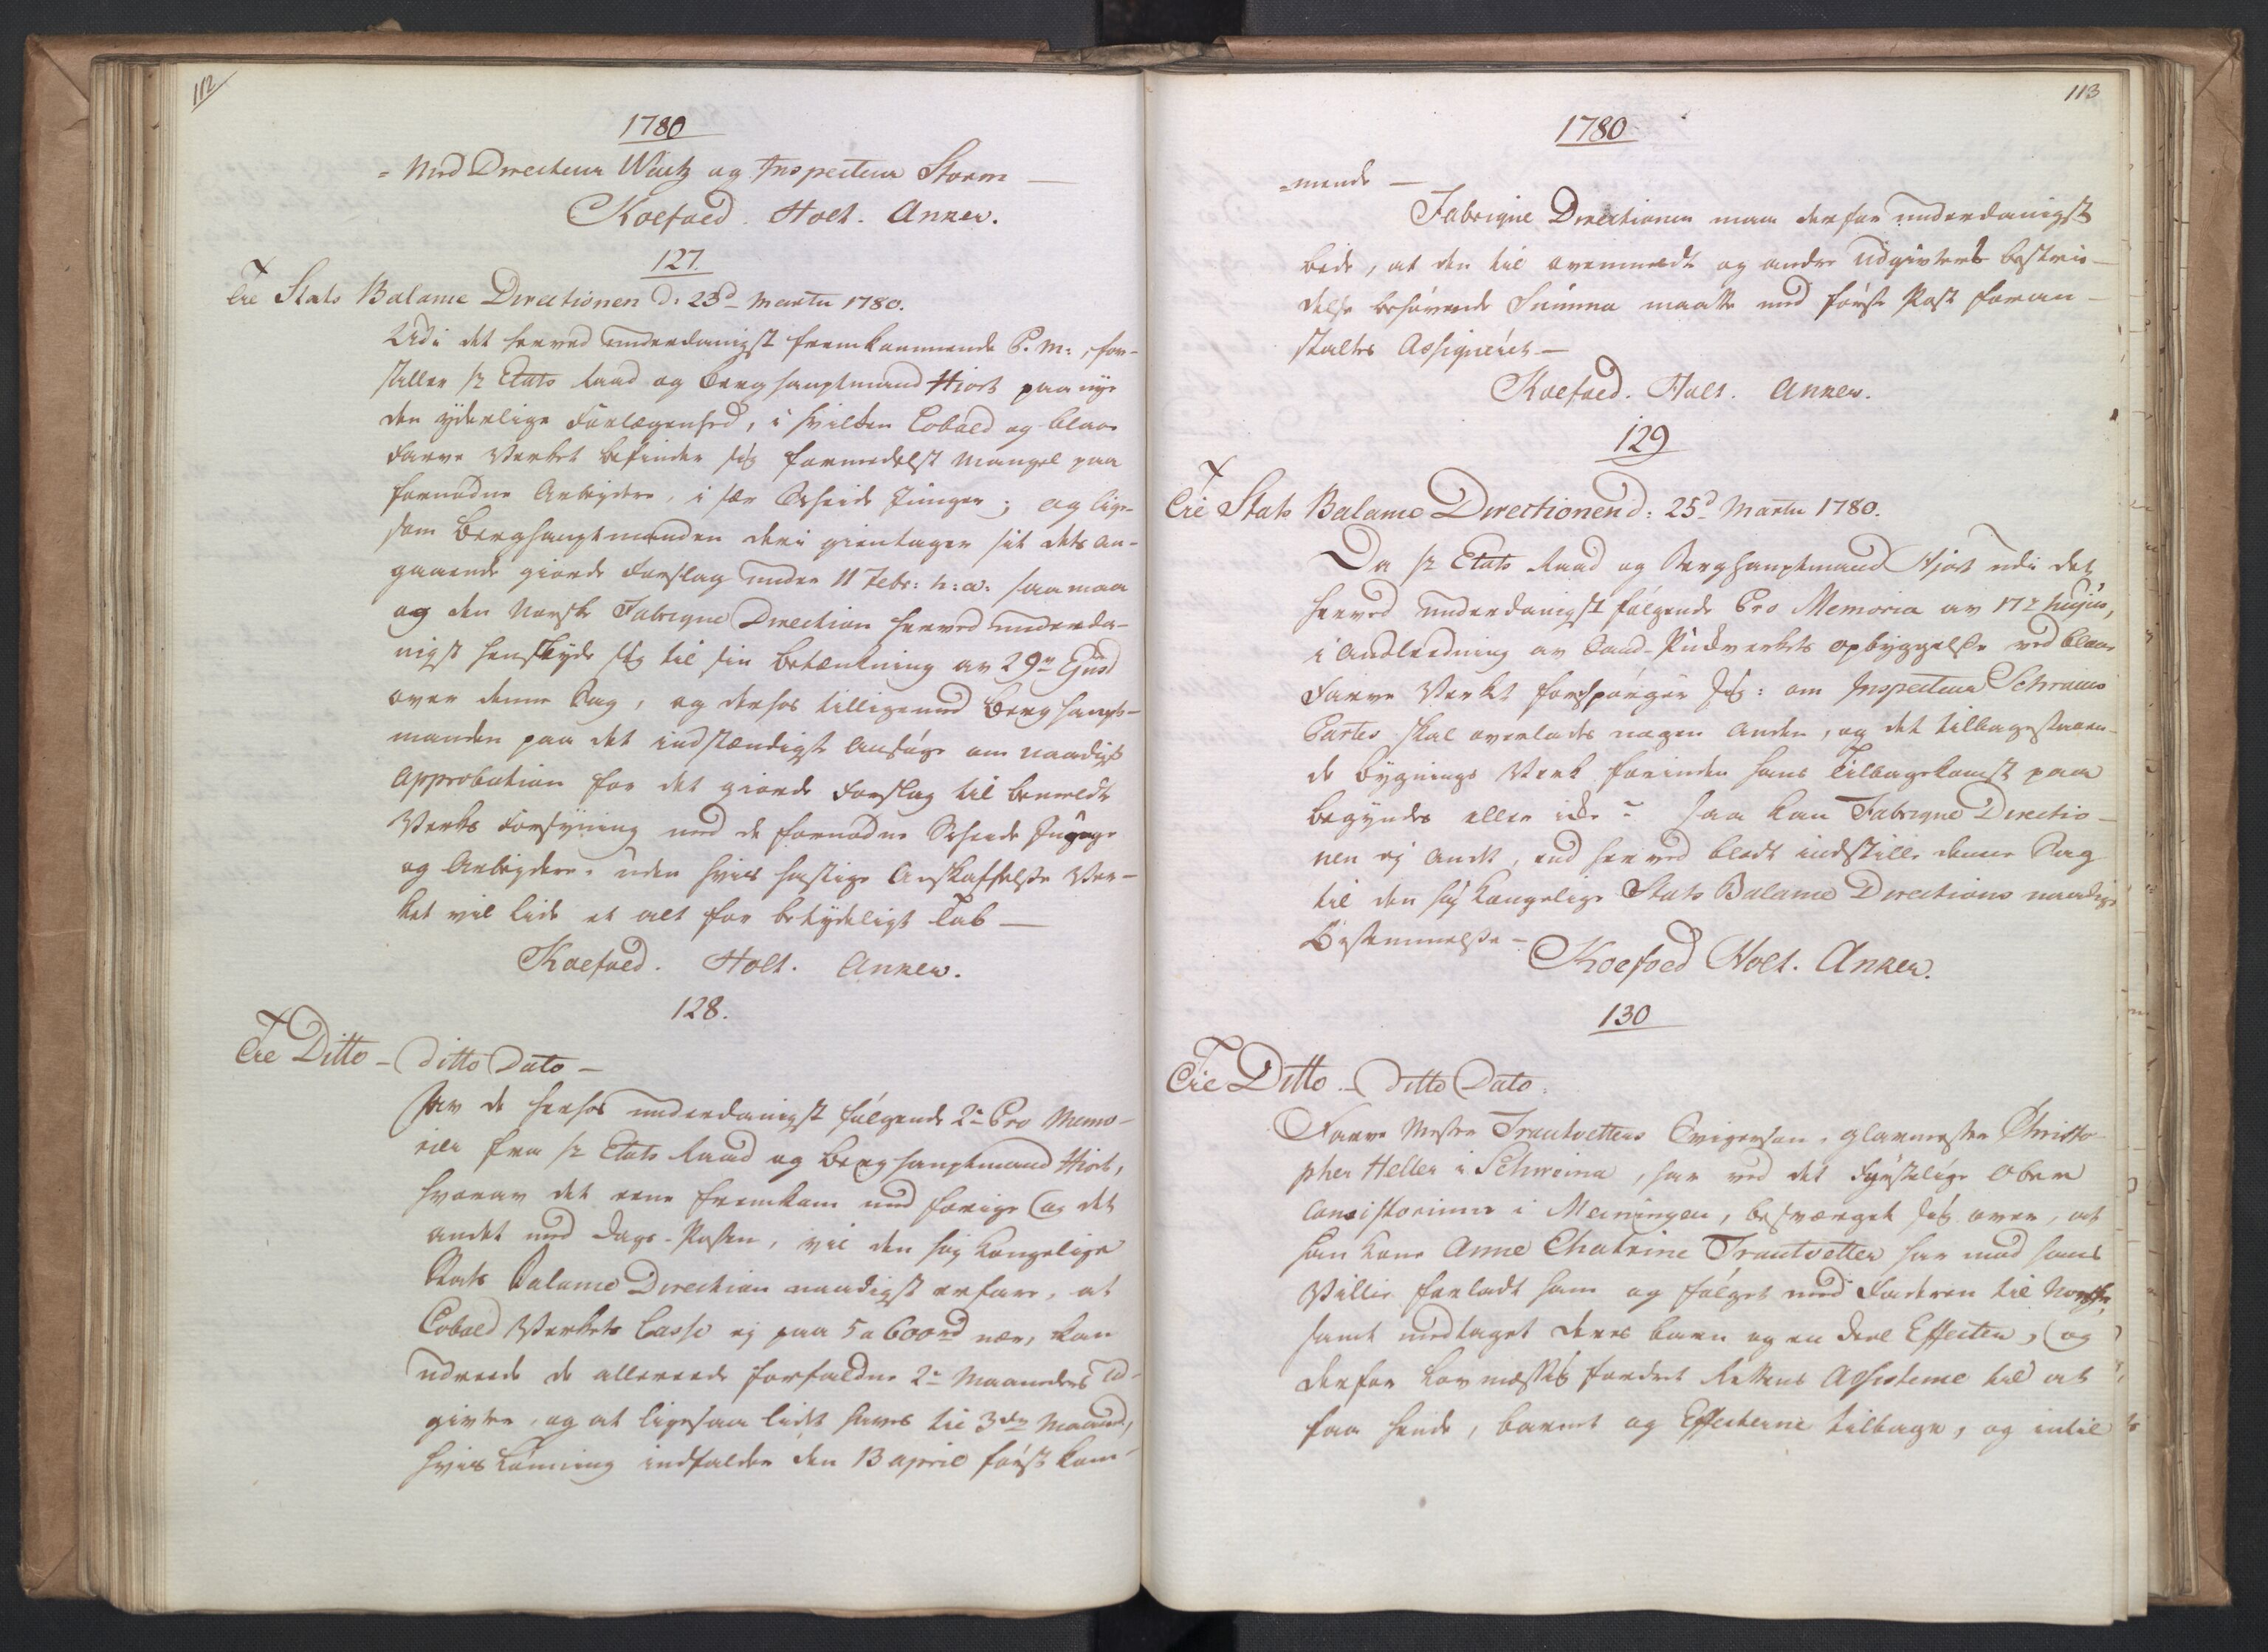 112
1780
= Med Directeur Wintz og Inspecteur Storm —
Koefoed. Holt. Anker.
127.
Til Stats Balance Directionen d: 23d Martii 1780.
Udi det herved underdanigst fremkommende P. M:, fore-
stiller Hr Etats Raad og Berghauptmand Hiort paa nye
den yderlige Forlægenhed, i hvilken Cobold og Blaae
Farve Verket befinder sig formedelst Mangel paa
fornødne Arbeydere, i sær Scheide Junger; og lige-
som Berghauptmanden deri gientager sit dets an-
gaaende giorde Forslag under 11 Febr: h: a: saa maa
og den Norske Fabrique Direction herved underda-
nigst henskyde sig til sin Betænkning av 29n Ejusd
over denne Sag, og derhos tilligemed Berghaupt-
manden paa det indstændigste Ansøge om naadigst
Approbation for det giorde Forslag til bemeldte
Verks Forsyning med de fornødne Scheide Junge
og Arbeydere, uden hvis hastige Anskaffelse Ver-
ket vil lide et alt for betydeligt Tab —
Koefoed. Holt. Anker.
128.
Til Ditto - ditto Dato —
Av de herhos underdanigst følgende 2de Pro Memo-
rier fra Hr Etats Raad og Berghauptmand Hiort,
hvorav det eene fremkom med forrige og det
andet med Dags-Posten, vil den høy Kongelige
Stats Balance Direction naadigst erfare, at
Cobold Verkets Casse ej paa 5 a 600 rd nær, kan
udreede de allereede forfaldne 2de Maaneders Ud-
givter, og at ligesaa lidt haves til 3die Maaned,
hvis Lønning indfalder den 13 april først kom-
113
1780
=mende —
Fabrique Directionen maa derfor underdanigst
bede, at den til ovenmeldte og andre Udgivters bestrii-
delse behøvende Summa maatte med første Post foran-
staltes Assigneret —
Koefoed. Holt. Anker.
129
Til Stats Balance Directionen d: 25d Martii 1780.
Da Hr Etats Raad og Berghauptmand Hjort udi det
herved underdanigst følgende Pro Memoria av 17de hujus,
i Andleedning av Sand-Pukverkets opbyggelse ved Blaae
Farve Verket forspørger sig: om Inspecteur Schraues
Partes skal overlades nogen Anden, og det tilbagestaaen-
de Bygnings Verk forinden hans Tilbagekomst paa
begyndes eller ikke? saa kan Fabrique Directio-
nen ej andet, end herved blodt indstille denne Sag
til den høy Kongelige Stats Balance Directions naadige
Bestemmelse —
Koefoed Holt. Anker.
130
Til Ditto - ditto Dato.
Farve Mester Trautvetters Svigersøn, Glarmester Christo-
pher Heller i Schweina, har ved det Fyrstelige Ober
Consistorium i Meiningen, besværget sig over, at
han Kone Anne Chatrine Trautvetter har mod hans
Villie forladt ham og følget med Faderen til Norge,
samt medtaget deres Barn og en Deel Effecter, og
derfor Lovmæssig fordret Rettens Assistence til at
faa hende, barnet og Effecterne tilbage, og intil